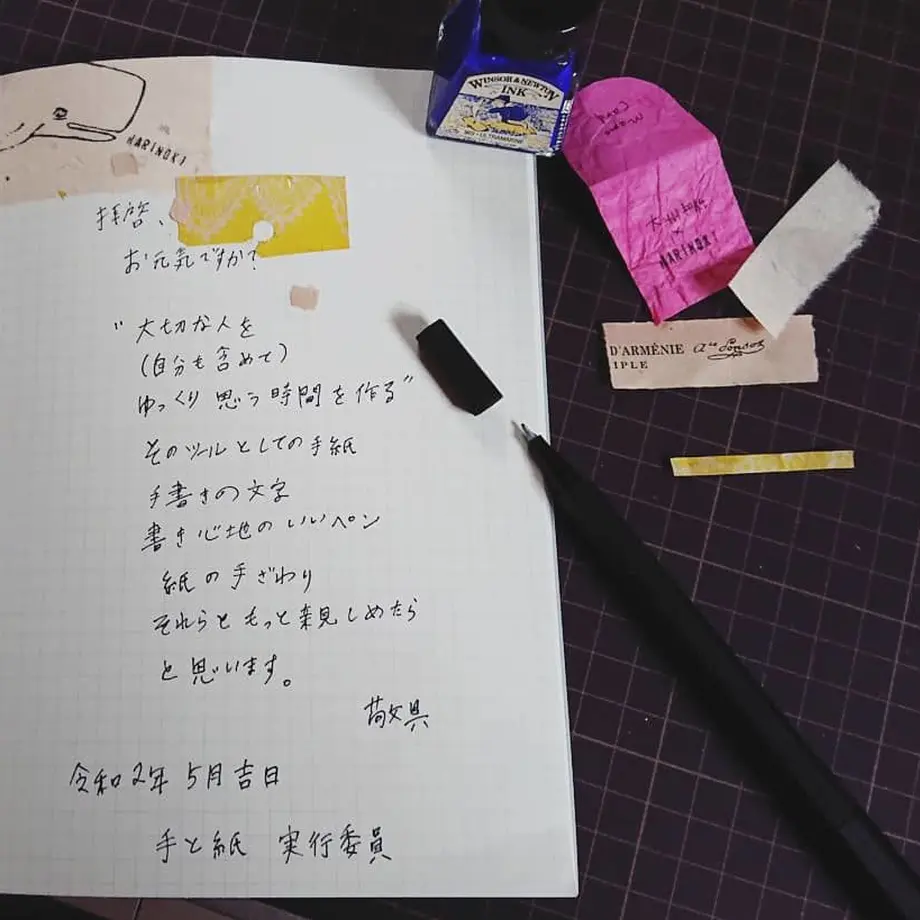 HARINOKI
拝啓、
お元気ですか?
"大切な人を
(自分も含めて)
ゆっくり思う時間を作る"
そのツールとしての手紙
手書きの文字
書き心地のいいペン
紙の手ざわり
それらともっと親しめたら
と思います。
敬具
令和2年 5月吉日
手と紙 実行委員
WINSOR & NEWTON
INK
×
HARINOKI
D'ARMÉNIE
IPLE